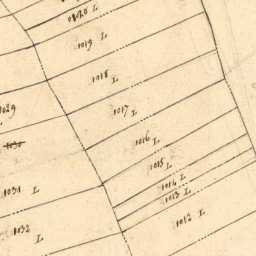 1020 L
1019 L
1018 L
1017 L
1029
1016 L
1030
1015 L
1014 L
1031 L
1013 L
1012 L
1032 L